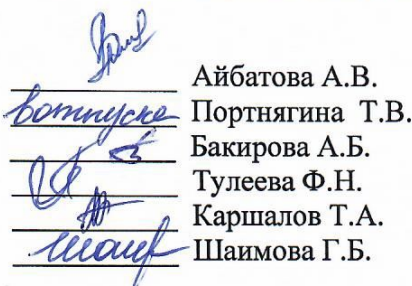 Айбатова А.В.
в отпуске Портнягина Т.В.
Бакирова А.Б.
Тулеева Ф.Н.
Каршалов Т.А.
Шаимова Г.Б.